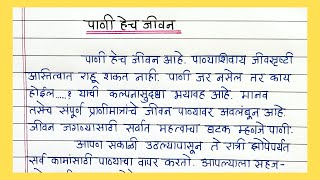 पाणी हेच जीवन
पाणी हेच जीवन आहे. पाण्याशिवाय जीवसृष्टी
अस्तित्वात राहू शकत नाही. पाणी जर नसेल तर काय
होईल.....? याची कल्पनासुद्धा भयावह आहे. मानव
तसेच संपूर्ण प्राणीमात्रांचे जीवन पाण्यावर अवलंबून आहे.
जीवन जगण्यासाठी सर्वात महत्वाचा घटक म्हणजे पाणी.
आपण सकाळी उठल्यापासून ते रात्री झोपेपर्यंत
सर्व कामांसाठी पाण्याचा वापर करतो. आपल्याला सहज-